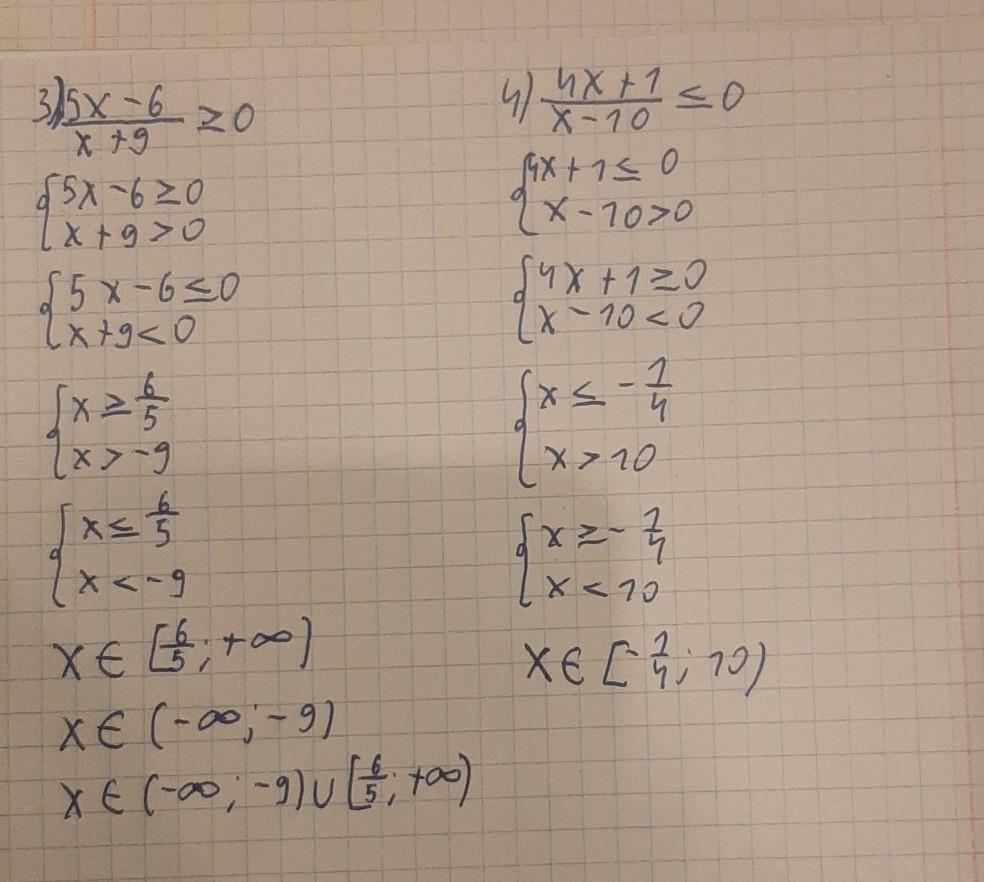 3) (5x-6)/(x+9) ≥ 0
{ 5x-6≥0
x+9>0
{ 5x-6≤0
x+9<0
{ x ≥ 6/5
x>-9
{ x ≤ 6/5
x<-9
x ∈ [6/5; +∞)
x ∈ (-∞; -9)
x ∈ (-∞; -9) ∪ [6/5; +∞)
4) (4x+1)/(x-10) ≤ 0
{ 4x+1≤0
x-10>0
{ 4x+1≥0
x-10<0
{ x ≤ -1/4
x>10
{ x ≥ -1/4
x<10
x ∈ [-1/4; 10)